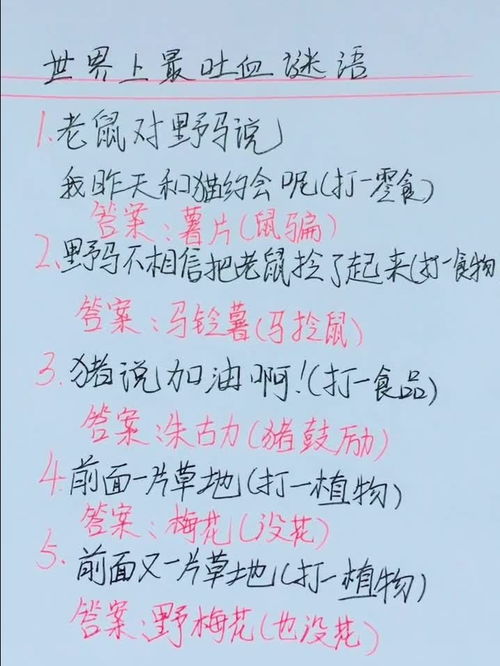 世界上最吐血谜语
1.老鼠对野马说
我昨天和猫约会呢(打一零食)
答案:薯片(鼠骗)
2.野马不相信把老鼠拎了起来(打一食物
答案:马铃薯(马拎鼠)
3.猪说加油啊!(打一食品)
答案:朱古力(猪鼓励)
4.前面一片草地(打一植物)
答案:梅花(没花)
5.前面又一片草地(打一植物)
答案:野梅花(也没花)